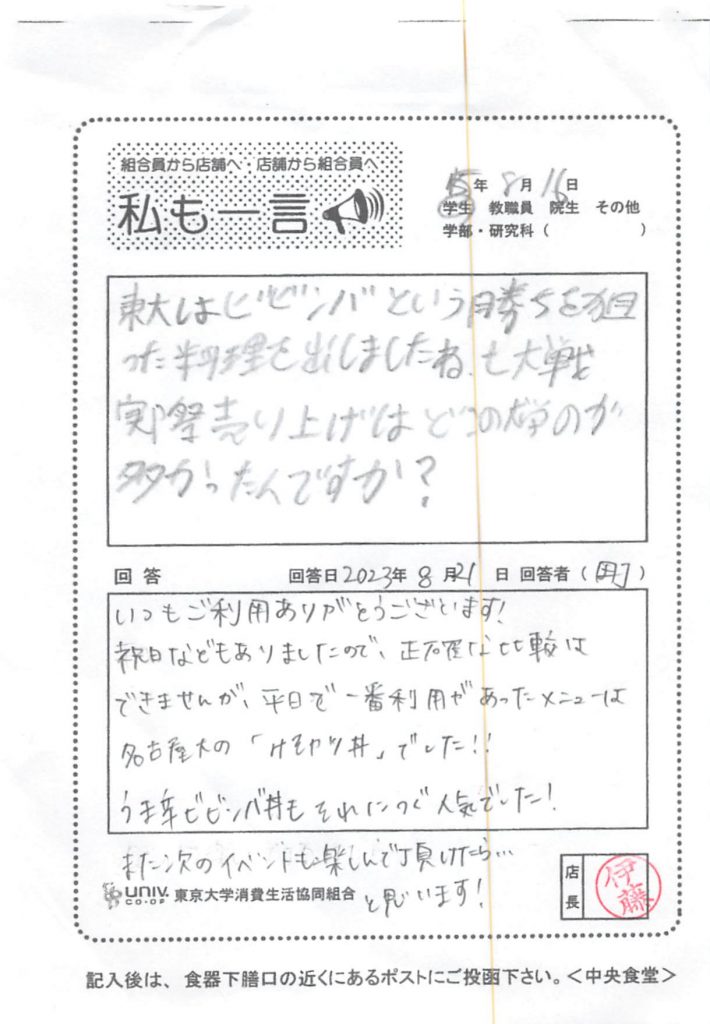 組合員から店舗へ・店舗から組合員へ
私も一言
5年 8月16日
学生 教職員 院生 その他
学部・研究科（ ）
東大はビビンバという勝ちを狙
った料理を出しましたね。七大戦
実際売り上げはどこの大学のが
多かったんですか？
回答 回答日2023年 8月21日 回答者（ ）
いつもご利用ありがとうございます!
祝日などもありましたので、正確な比較は
できませんが、平日で一番利用があったメニューは
名古屋大の「みそカツ丼」でした!!
ビビンバ丼もそれにつぐ人気でした!
また次のイベントも楽しんで頂けたら…
と思います!
UNIV. CO-OP 東京大学消費生活協同組合
店長 伊藤
記入後は、食器下膳口の近くにあるポストにご投函下さい。＜中央食堂＞